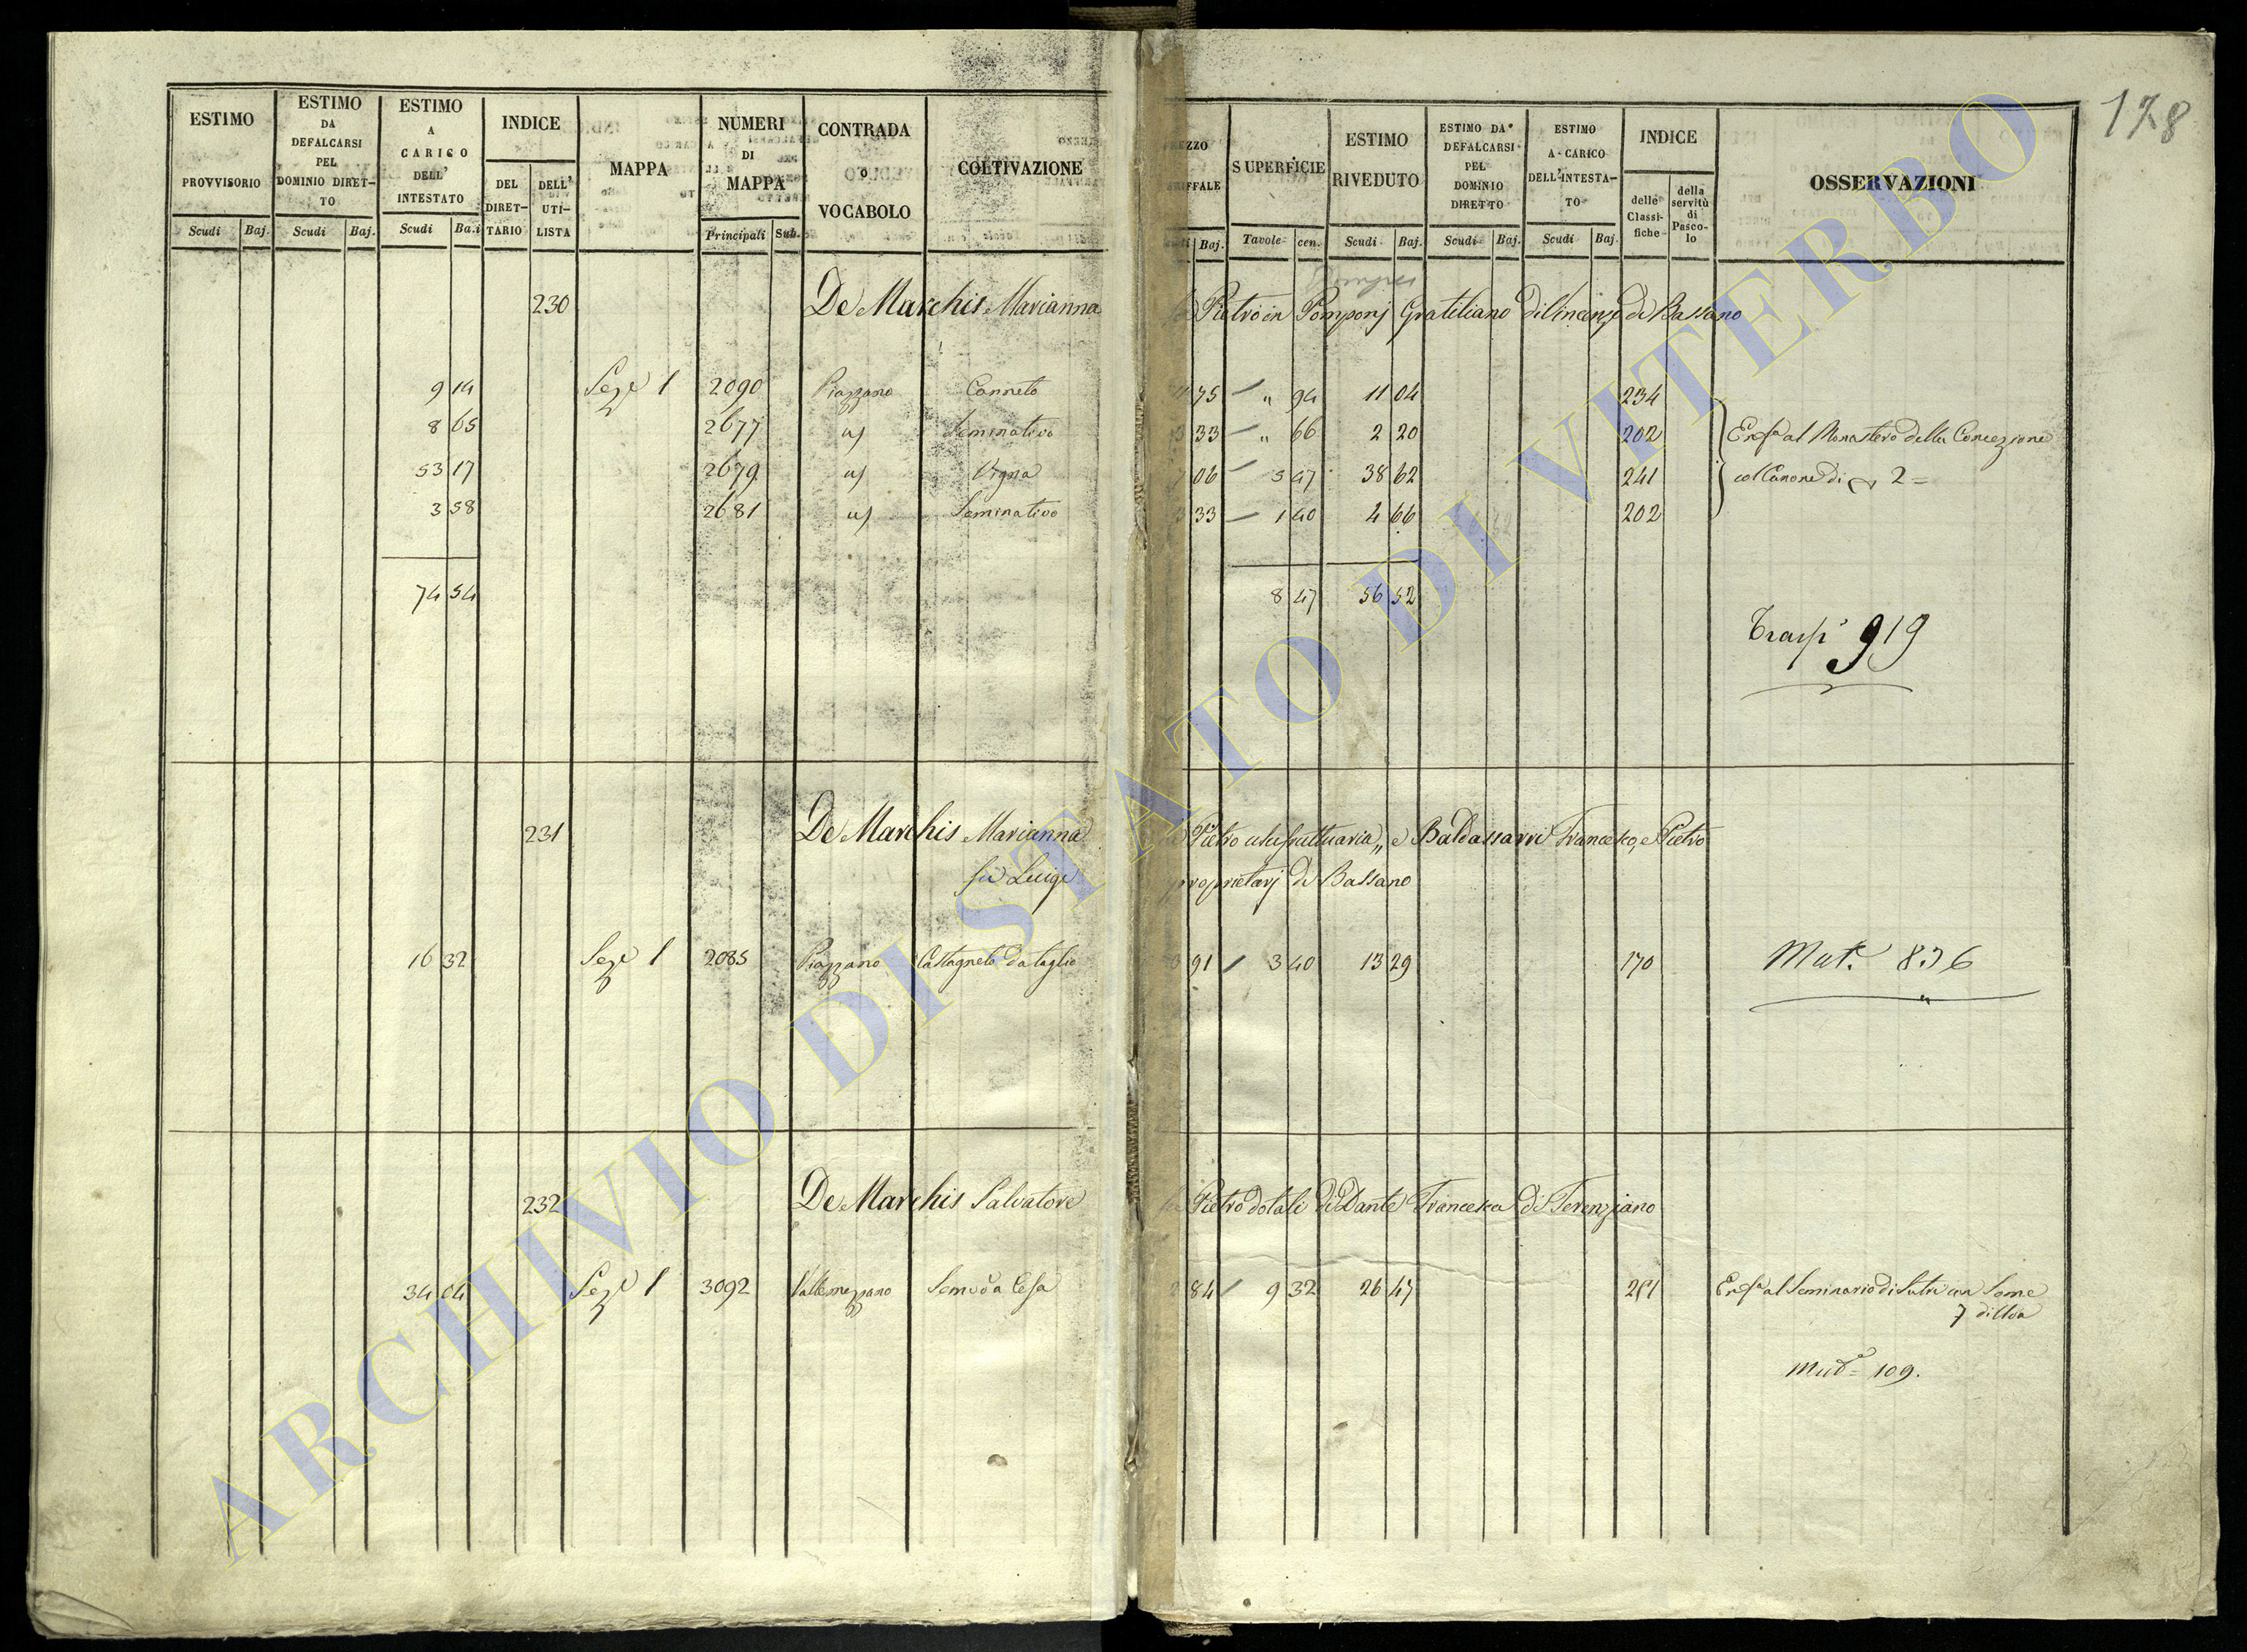 178
ESTIMO PROVVISORIO
ESTIMO DA DEFALCARSI PEL DOMINIO DIRET-TO
ESTIMO A CARICO DELL' INTESTATO
INDICE
DEL DIRET-TARIO
DELL' UTI-LISTA
MAPPA
NUMERI DI MAPPA
CONTRADA O VOCABOLO
COLTIVAZIONE
Scudi Baj. Scudi Baj. Scudi Ba.i Principali Sub.
SUPERFICIE
ESTIMO RIVEDUTO
ESTIMO DA DEFALCARSI PEL DOMINIO DIRETTO
ESTIMO A CARICO DELL'INTESTA-TO
INDICE
delle Classi-fiche
della servitù di Pasco-lo
OSSERVAZIONI
Baj. Tavole cen. Scudi Baj. Scudi Baj. Scudi Baj.
230 De Marchis Marianna Pietro in Pomponj Gratiliano di Vincenzo di Bassano
9 14 Seze 1 2090 Piazzano Canneto 75 " 94 11 04 234
8 65 2677 id Seminativo 33 " 66 2 20 202 Enfa al Monastero della Concezione
53 17 2679 id Vigna 06 5 47 38 62 241 col Canone di 2 =
3 58 2681 id Seminativo 33 1 40 4 66 202
74 54 8 47 56 52
919
231 De Marchis Marianna Pietro usufruttuaria, e Baldassarri Francesco, e Pietro
fu Luigi proprietarj di Bassano
16 32 Seze 1 2085 Piazzano Castagneto da taglio 91 3 40 13 29 170 Mut. 836
232 De Marchis Salvatore Pietro dotali di Dante Francesca di Terenziano
34 04 Seze 1 3092 Vallemezzano 84 9 32 26 47 Enfa al Seminario di Sutri con Some
7 di
Mut = 109.
ARCHIVIO DI STATO DI VITERBO